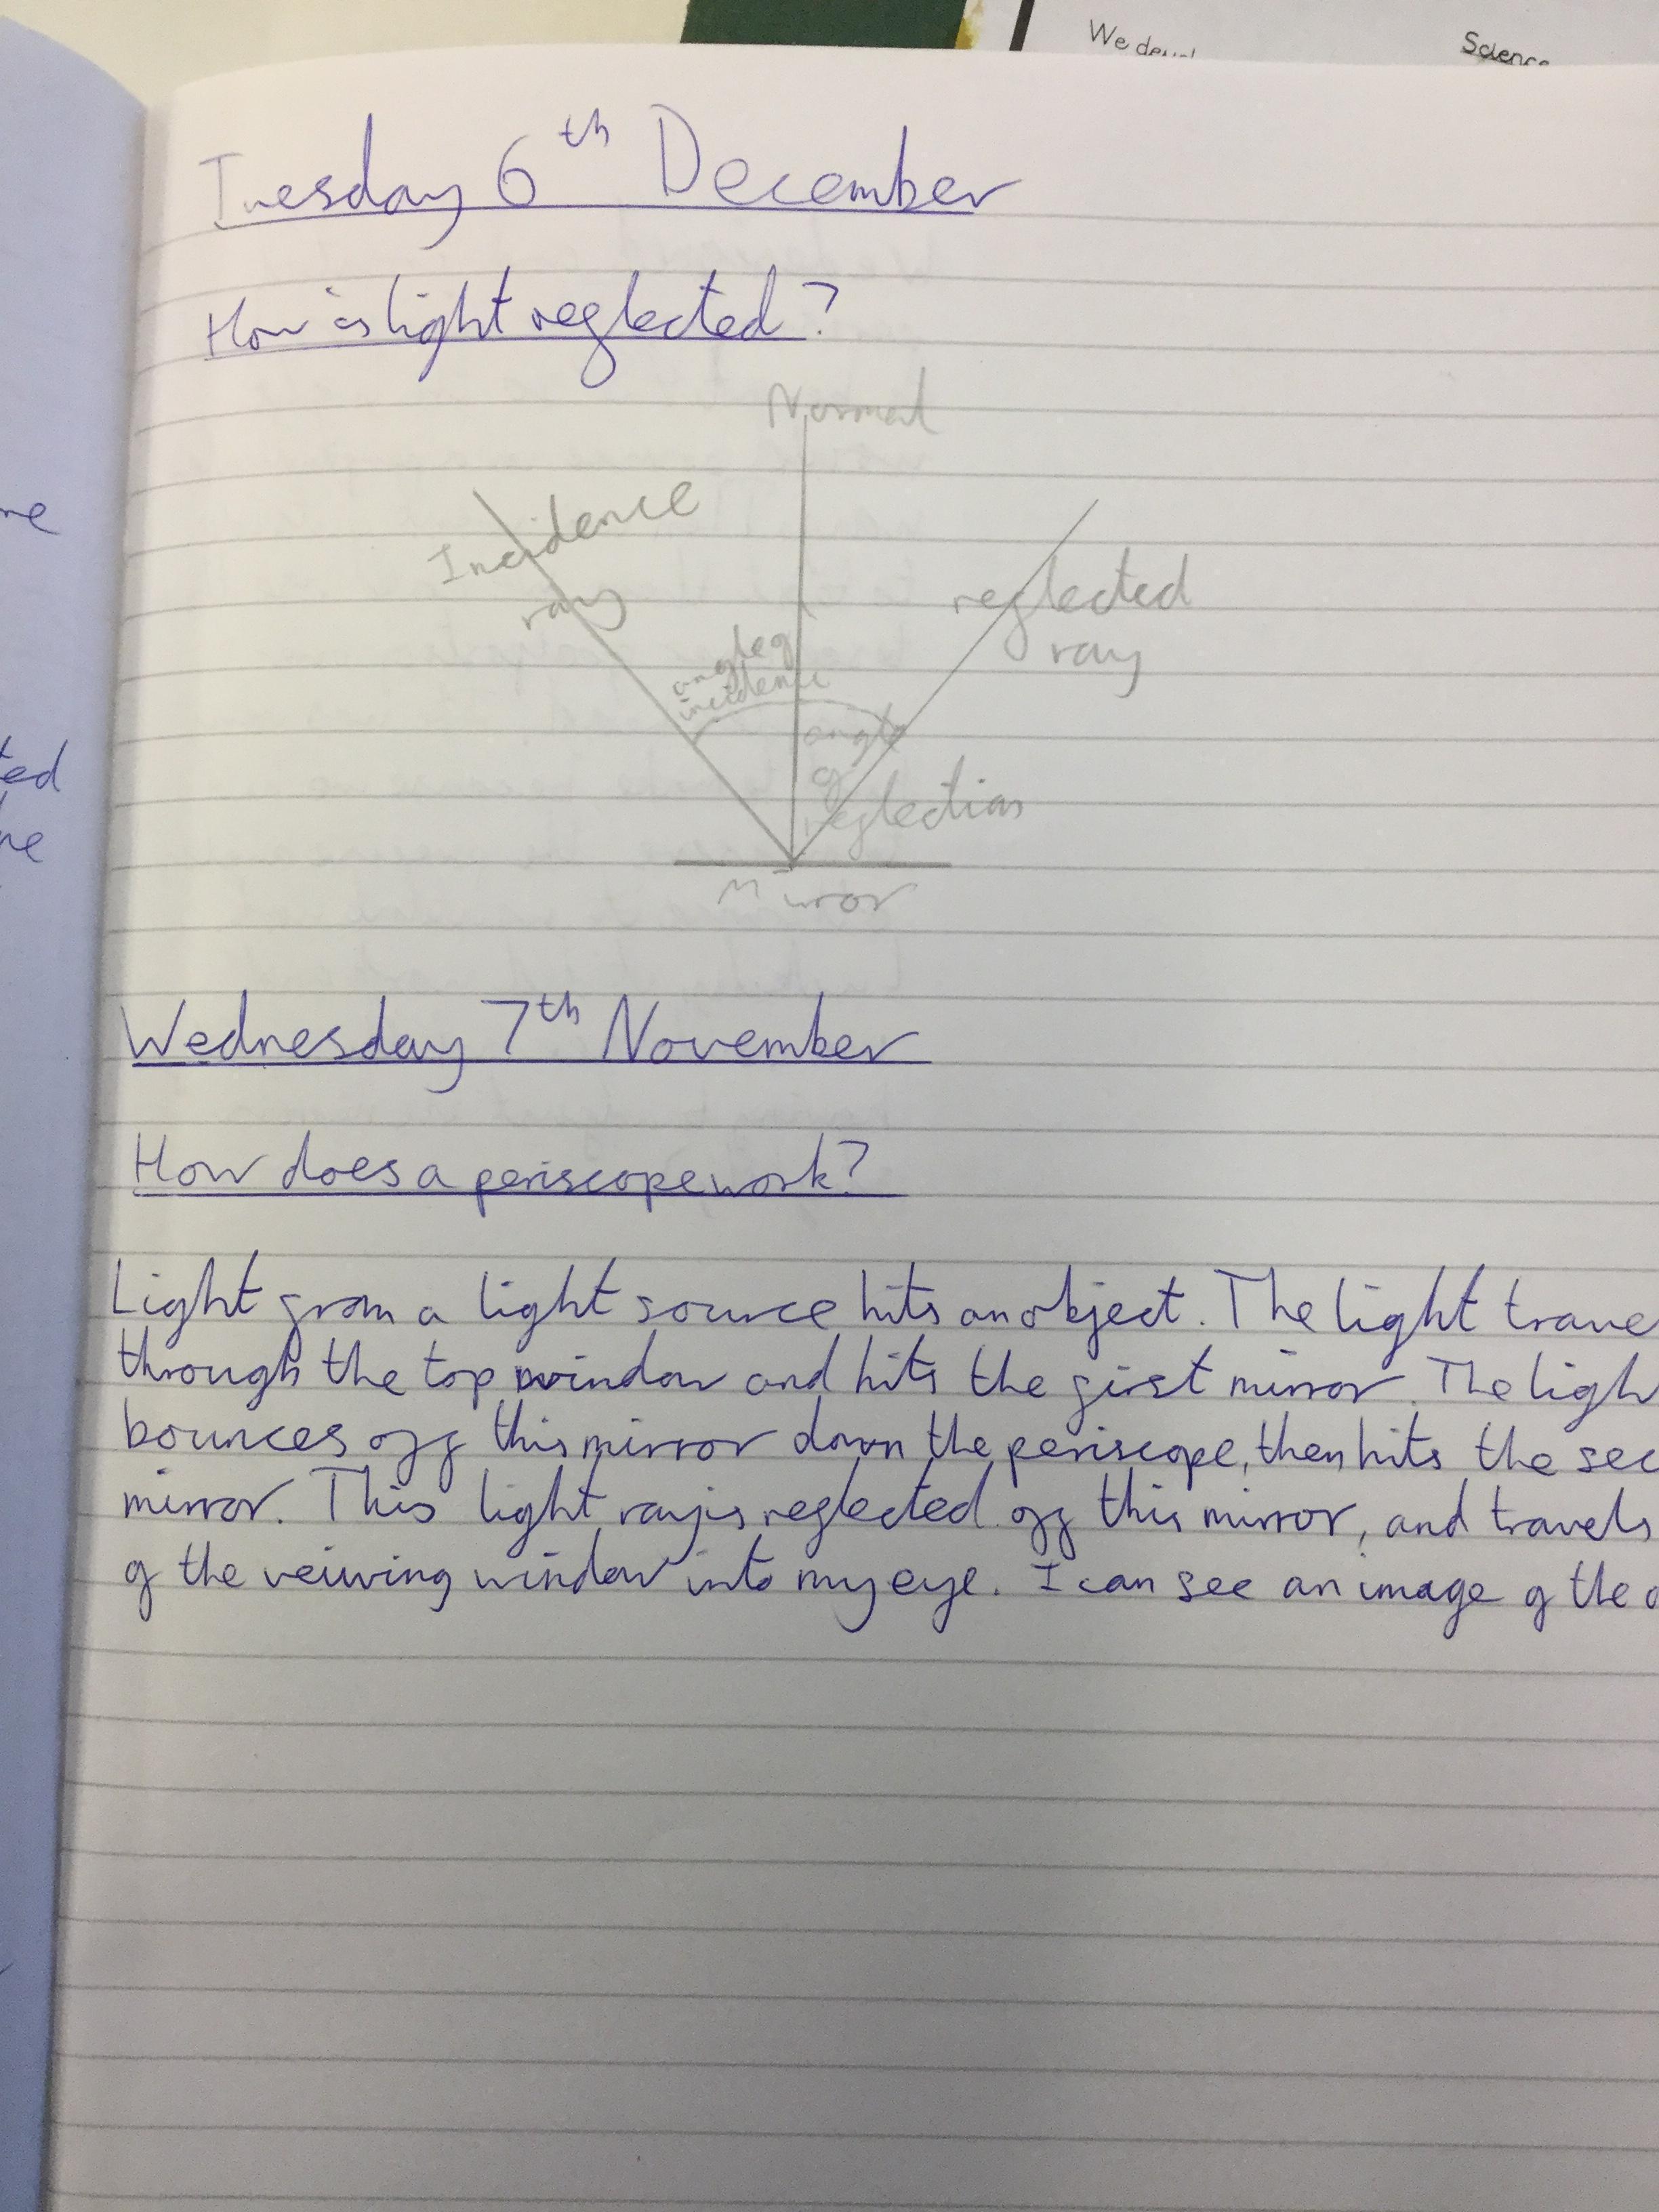 We
Science
Tuesday 6th December
How is light reflected?
Normal
Incidence
ray
reflected
ray
angle of
incidence
angle
of
reflection
Mirror
Wednesday 7th November
How does a periscope work?
Light from a light source hits an object. The light trave
through the top window and hits the first mirror. The ligh
bounces off this mirror down the periscope, then hits the sec
mirror. This light ray is reflected off this mirror, and travels
of the veiwing window into my eye. I can see an image of the o
ne
ted
he